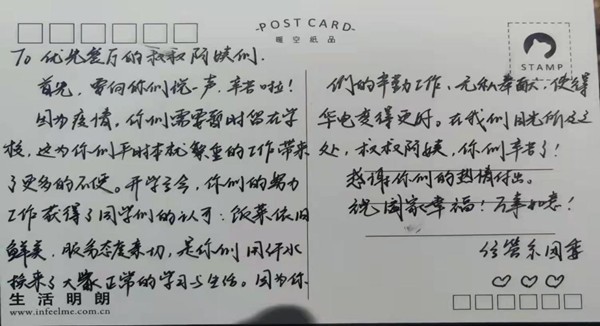 POST CARD
暖空纸品
STAMP
To 优先餐厅的叔叔阿姨们.
首先，要向你们说一声，辛苦啦！
因为疫情，你们需要暂时留在学
校，这为你们平时本就繁重的工作带来
了更多的不便。开学之今，你们的努力
工作获得了同学们的认可：饭菜依旧
鲜美，服务态度亲切，是你们用汗水
换来了大家正常的学习与生活。因为你
們的辛勤工作、无私奉献，使得
华电变得更好。在我们目光所达之
处，叔叔阿姨，你们辛苦了！
感谢你们的热情付出。
祝阖家幸福！万事如意！
经管系团委
生活明朗
www.infeelme.com.cn